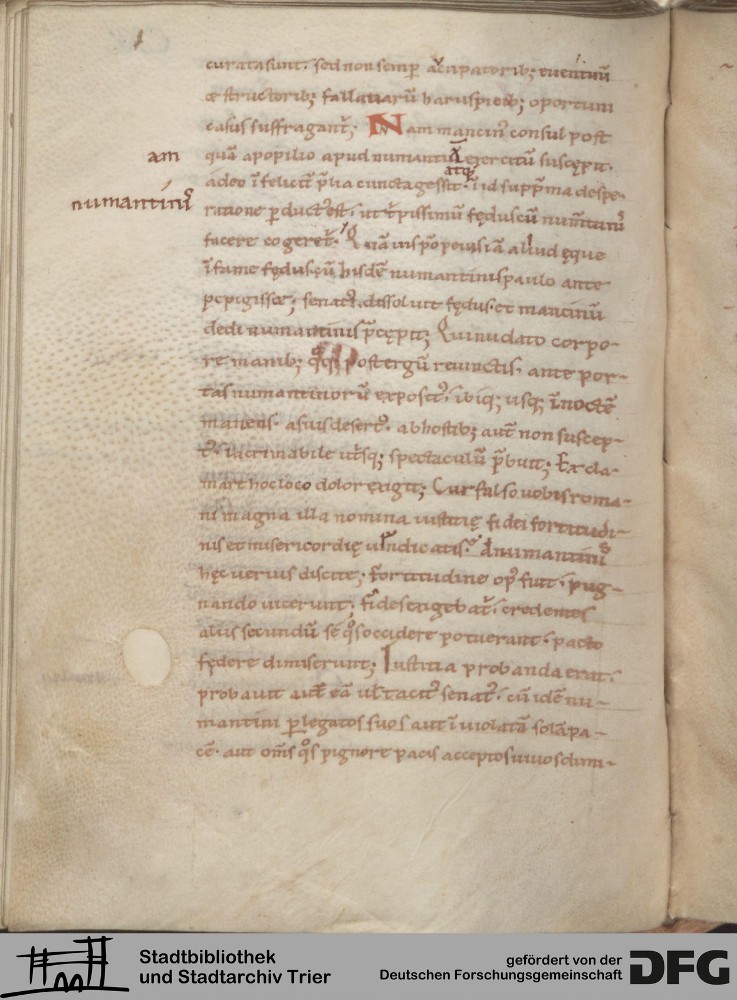 curata sunt. sed non semp acapatorib; euentuū
& structorib; fallaciarū haruspicib; oportuni
casus suffragant̄; Nam mancin᾿ consul post
am
quā apopilio apud numantiā exercitū suscępit.
atq;
adeo īfelicit̄ p̄lia cuncta gessit. īid supp̄ma despe-
numantinis
ratione pduct᾿ est. ut t̄pissimū fędus cū numantinis
facere coger&̄. Quā inspōpeius iā aliud ęque
īfame fędus cū hisdē numantinis paulo ante
pepigiss&; senat᾿ dissolui fędus. et mancinū
dedi numantinis p̄cępit; Qui nudato corpo-
re manib; q;q; post ergū reuinctis. ante por-
tas numantinorū exposit᾿. ibiq; usq; ī noctē
manens. a suis desert᾿. ab hostib; aut̄ non suscep-
t᾿. lacrimabile utrisq; spectaculū p̄buit; Excla-
mare hoc loco dolor exigit; Cur falso uobis roma-
ni magna illa nomina iustitię fidei fortitudi-
nis et misericordię uindicatis? A numantinis
hęc uerius discite; Fortitudine op᾿ fuit. pug-
nando uicerunt; Fides exigebat᾿. credentes
aliis secundū se q̊s occidere potuerant. pacto
fędere dimiserunt; Iustitia probanda erat.
probauit aut̄ eā ut̄ tacit᾿ senat᾿. cū idē nu-
mantini p legatos suos aut īuiolatā solā pa-
cē. aut om̄s q̊s pignore pacis acceptos uiuos dimi-
Stadtbibliothek
und Stadtarchiv Trier
gefördert von der
Deutschen Forschungsgemeinschaft
DFG